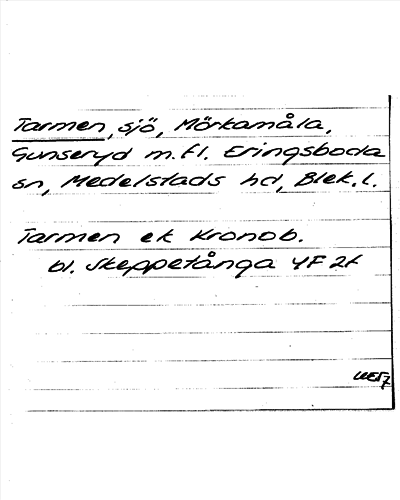 Tarmen, sjö, Mörkamåla,
Gunseryd m.fl. Eringsboda
sn, Medelstads hd, Blek.l.
Tarmen ek Kronob.
bl. Skeppetånga YF 2f